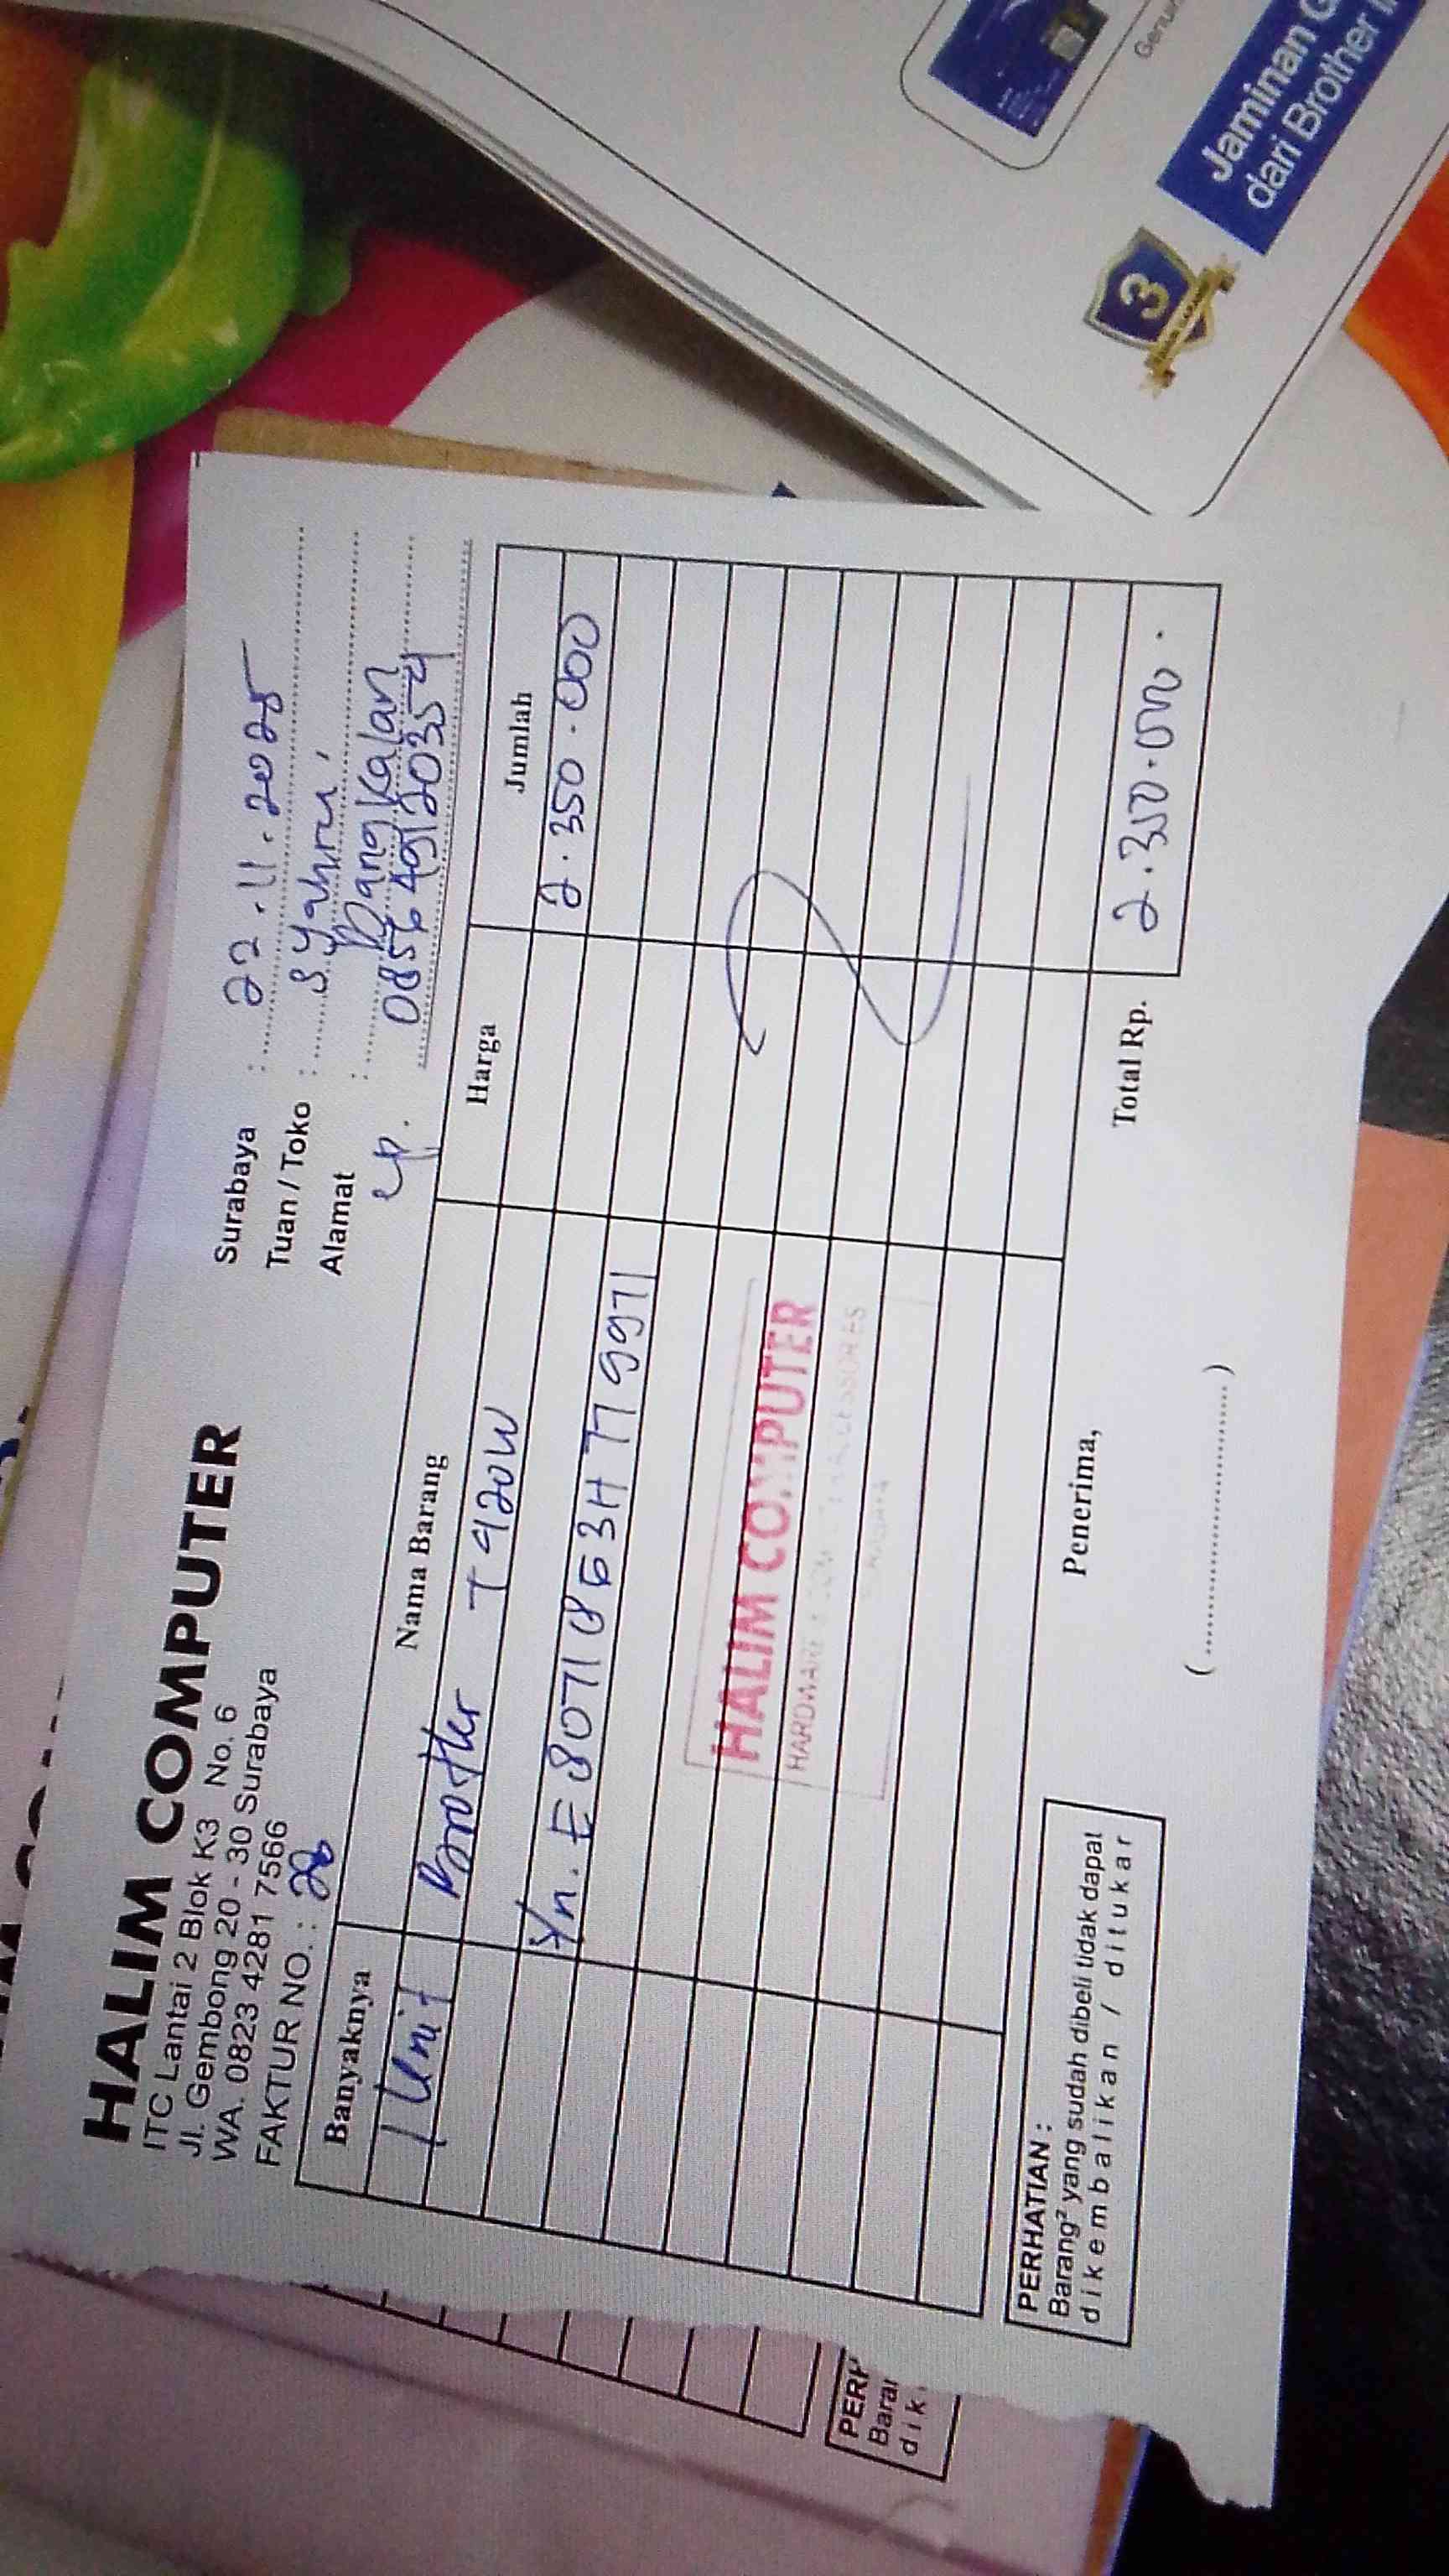 HALIM COMPUTER
ITC Lantai 2 Blok K3 No. 6
Jl. Gembong 20 - 30 Surabaya
WA. 0823 4281 7566
FAKTUR NO. : 20
Surabaya : 22.11.2025
Tuan / Toko : Syahrui
Alamat : Bangkalan
cp. 085649120354
Banyaknya Nama Barang Harga Jumlah
1 Unit Brother T920W 2.350.000
S/n. E80710F63H779971
HALIM COMPUTER
HARDWARE
Total Rp. 2.350.000.
Penerima,
(..............................)
PERHATIAN :
Barang² yang sudah dibeli tidak dapat
dikembalikan / ditukar
PERH
Baran
dik
3
Jaminan G
dari Brother I
Genui